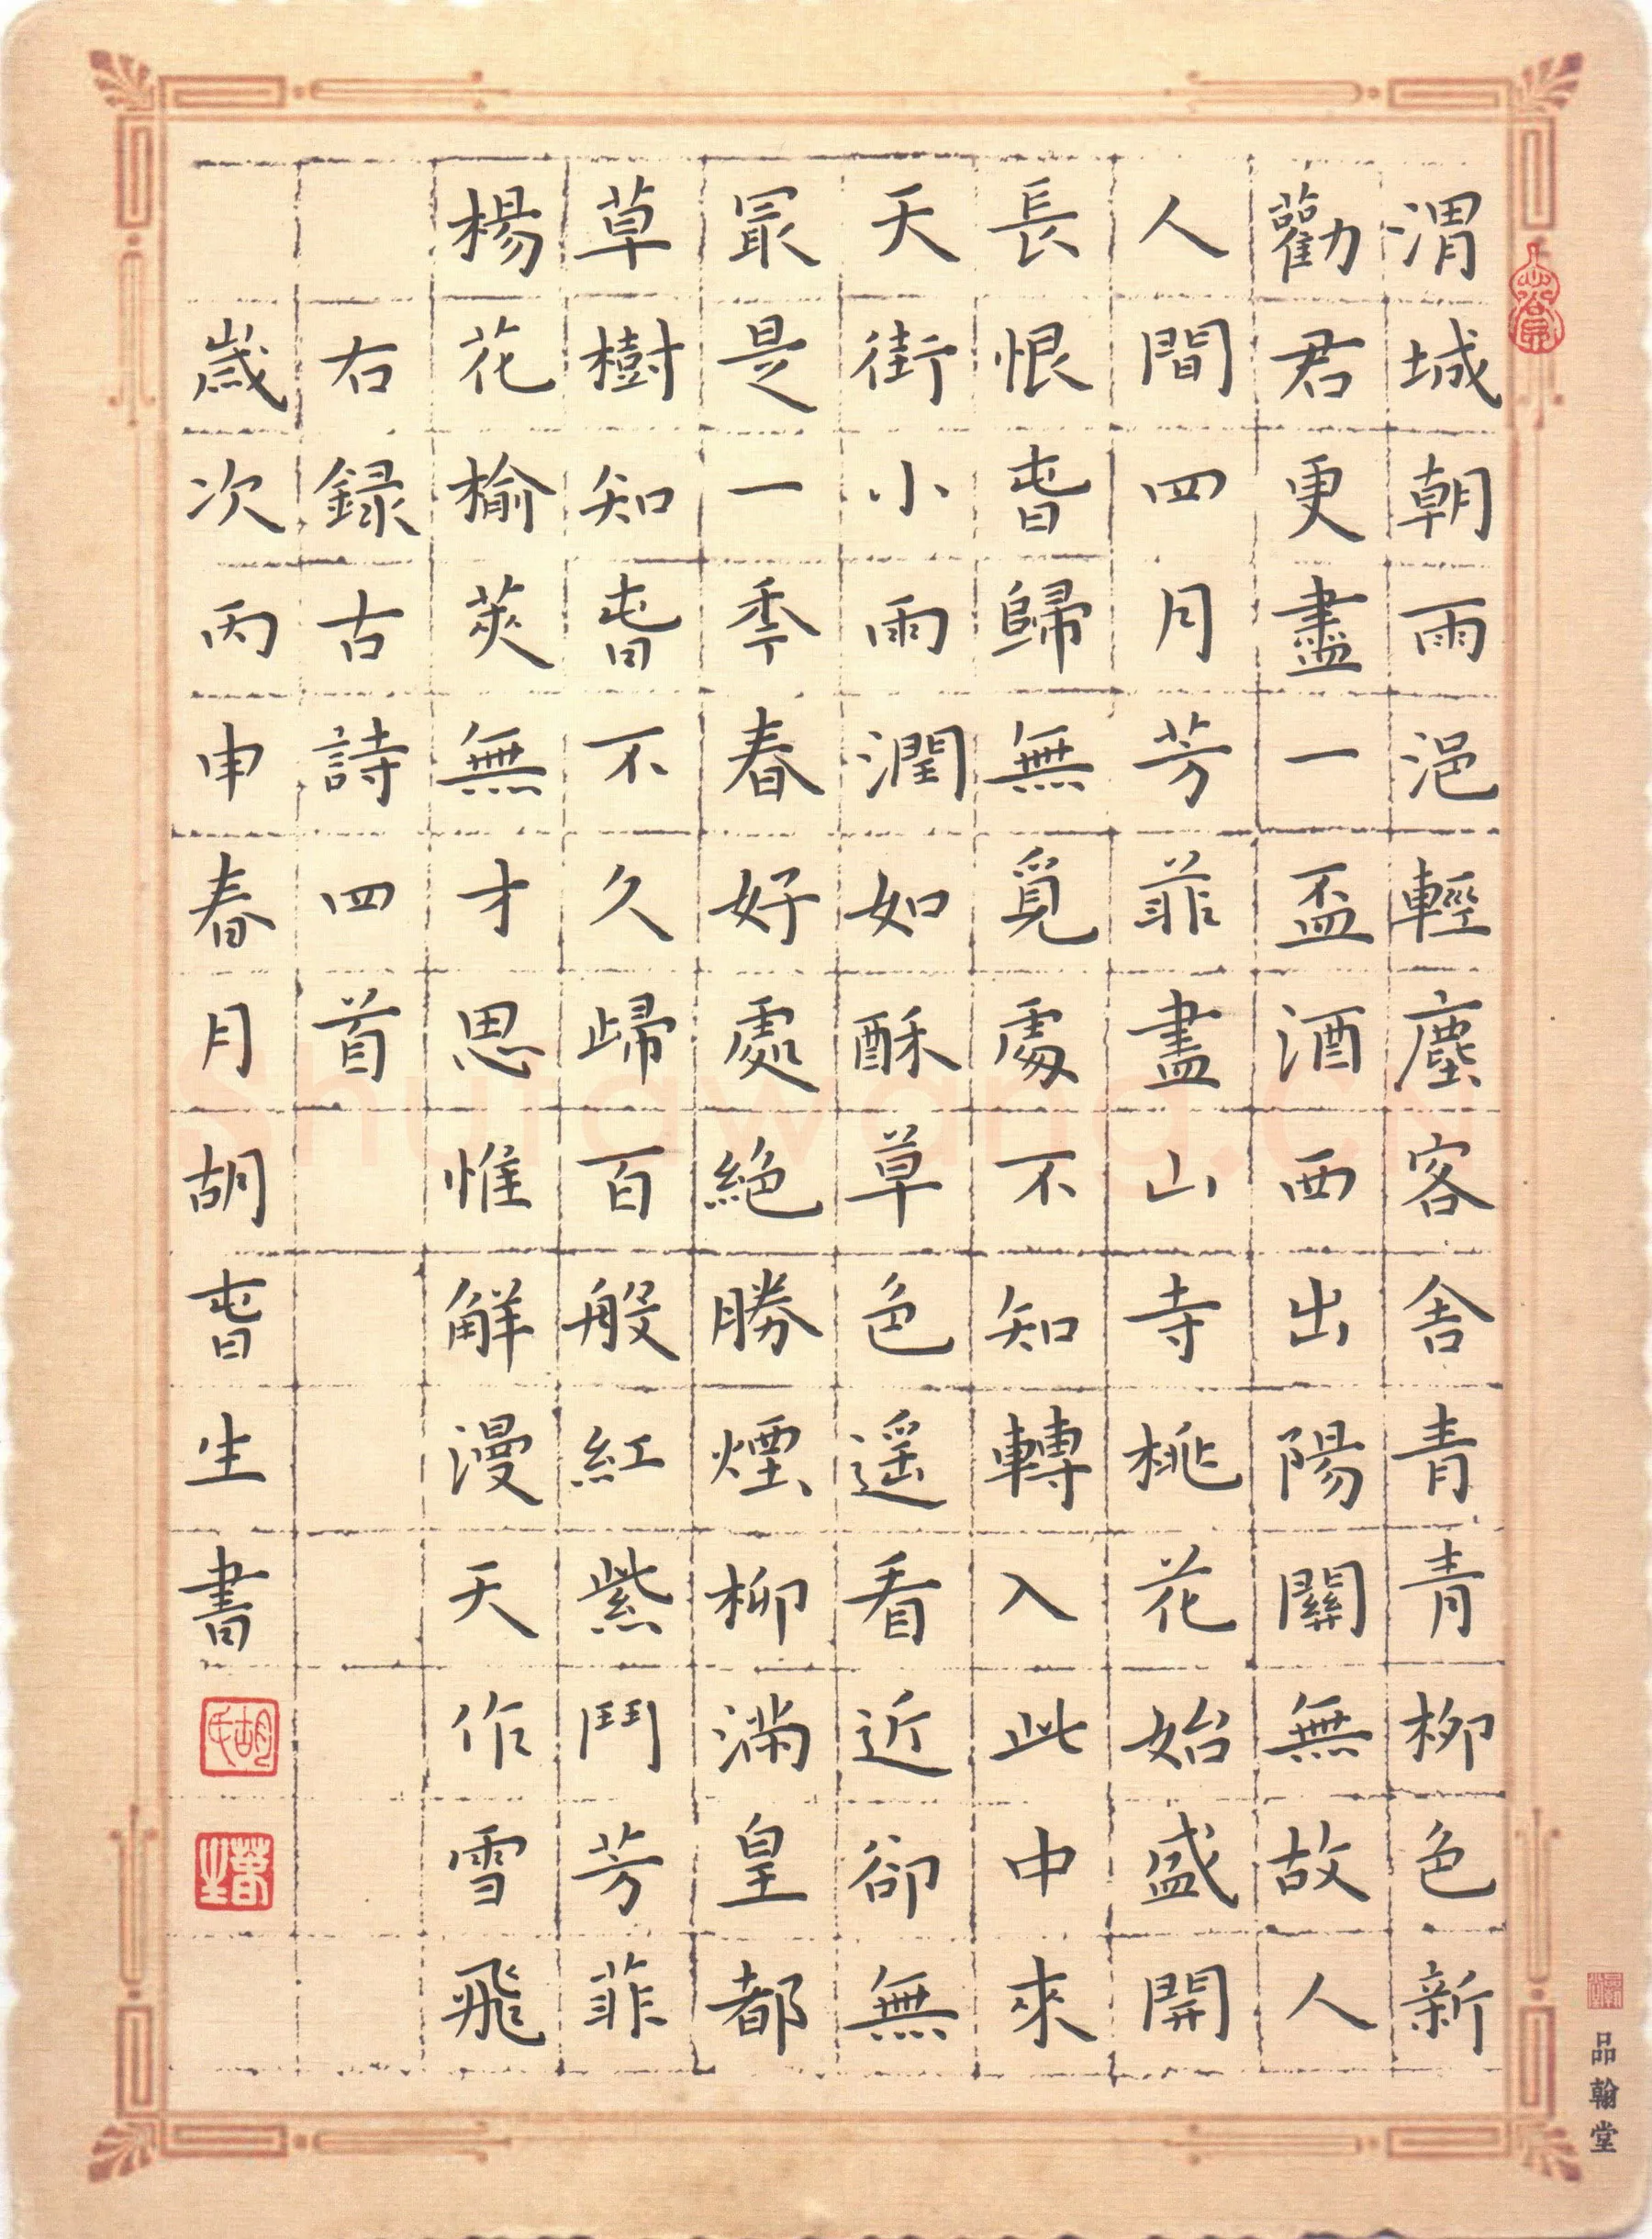 渭城朝雨浥輕塵客舎青青柳色新
勸君更盡一盃酒西出陽關無故人
人間四月芳菲盡山寺桃花始盛開
長恨旾歸無覓處不知轉入此中來
天街小雨潤如酥草色遥看近卻無
冣是一秊春好處絕勝煙柳滿皇都
草樹知旾不久歸百般紅紫鬥芳菲
楊花榆莢無才思惟解漫天作雪飛
右録古詩四首
歲次丙申春月胡旾生書
胡氏
春生
品翰堂
Shufawang.CN